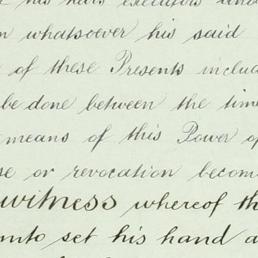 his heirs executors and
whatsoever his said
of these Presents includ
be done between the time
means of this Power of
se or revocation becom
witness whereof th
unto set his hand a